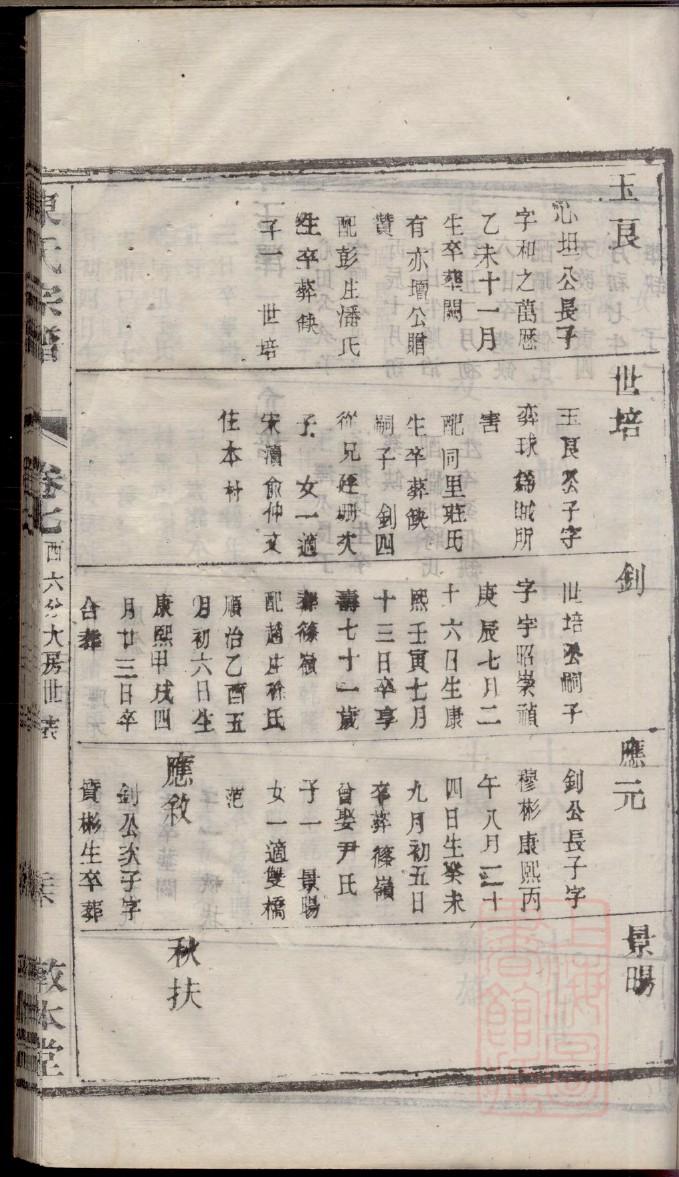 玉良
心坦公長子
字和之萬歷
乙未十一月
生卒葬闕
有亦壇公贈
贊
配彭庄潘氏
生卒葬缺
子一 世培
世培
玉良公子字
弈球為賊所
害
配同里莊氏
生卒葬缺
嗣子 釗四
從兄廷珊次
子 女一適
宋瀆俞仲文
住本村
釗
世培公嗣子
字宇昭崇禎
庚辰七月二
十六日生康
熙壬寅七月
十三日卒享
壽七十一歲
葬篠嶺
配趙庄徐氏
順治乙酉五
月初六日生
康熙甲戌四
月廿三日卒
合葬
應元
釗公長子字
穆彬康熙丙
午八月二十
四日生癸未
九月初五日
卒葬篠嶺
曾娶尹氏
子一 景陽
女一適雙橋
范
應敘
釗公次子字
賓彬生卒葬
景暘
秋扶
陳氏宗譜
卷七
西六分大房世表
敦本堂